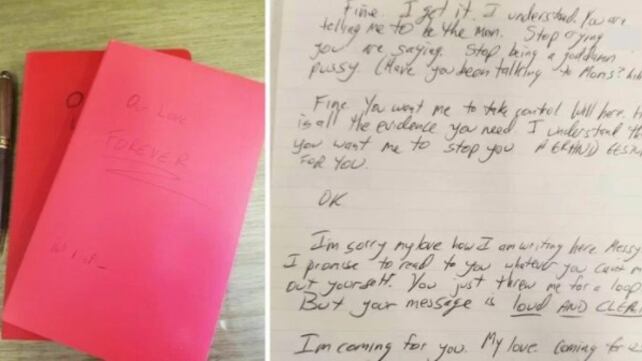 Our Love
FOREVER
Fine. I get it. I understand. You are
telling me to be the man. Stop crying
you are saying. Stop being a goddamn
pussy. (Have you been talking to Moms?
Fine. You want me to take control Will here.
is all the evidence you need. I understand
you want me to stop you. A GRAND
FOR YOU.
OK
I'm sorry my love how I am writing here. Messy
I promise to read to you whatever you can't
out yourself. You just threw me for a loop
But your message is loud AND CLEAR
I'm coming for you. My love. Coming for